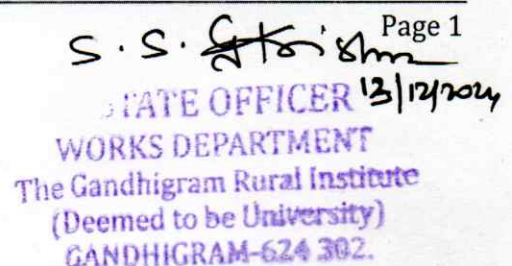 Page 1
S. S.
13/12/2024
TATE OFFICER
WORKS DEPARTMENT
The Gandhigram Rural Institute
(Deemed to be University)
GANDHIGRAM-624 302.